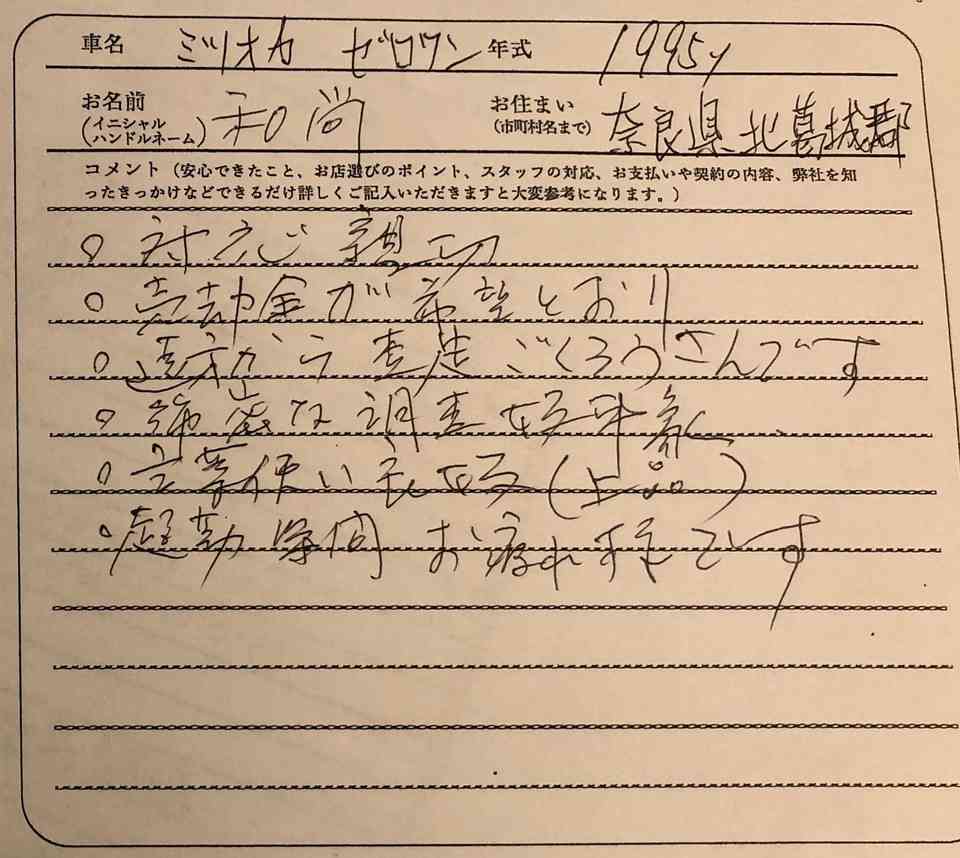 車名 ミツオカ ゼロワン 年式 1995y
お名前 (イニシャル ハンドルネーム) 和尚 お住まい (市町村名まで) 奈良県北葛城郡
コメント（安心できたこと、お店選びのポイント、スタッフの対応、お支払いや契約の内容、弊社を知
ったきっかけなどできるだけ詳しくご記入いただきますと大変参考になります。）
○ 対応親切
○ 売却金が希望とおり
○ 遠方から査定ごくろうさんです
○ 綿密な調査
○ 言葉使い良好(上品)
○ 超勤 お疲れすまです